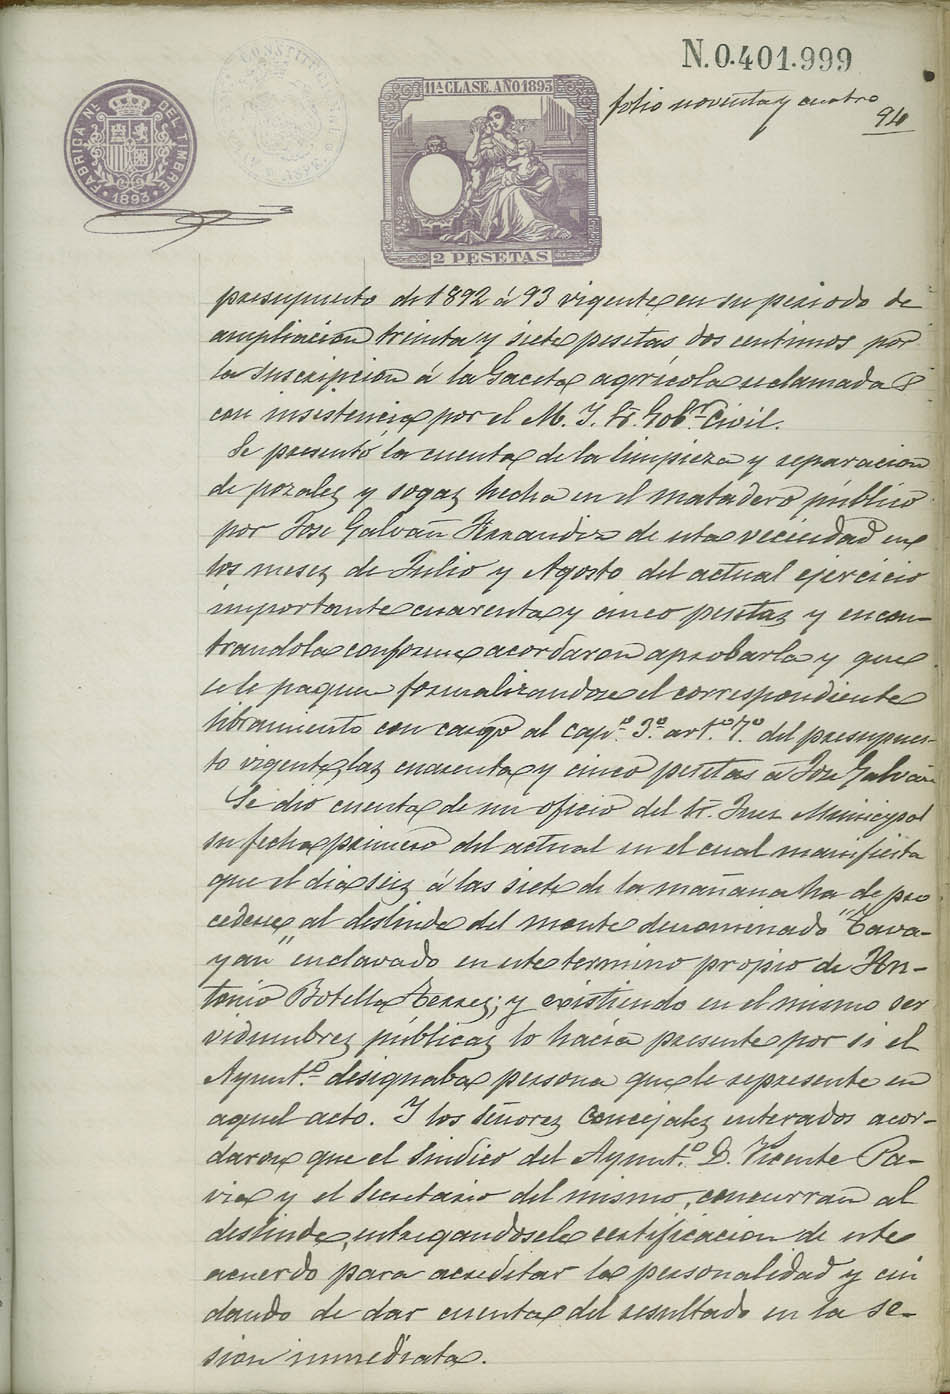 N.0.401.999
folio noventa y cuatro
94
11ª CLASE. AÑO 1893
FABRICA NL. DEL TIMBRE
1893
2 PESETAS
presupuesto de 1892 á 93 vigente en su periodo de
ampliacion treinta y siete pesetas dos centimos por
la suscripcion á la Gaceta agrícola reclamada
con insistencia por el M. I. Sr. Gobr. Civil.
Se presentó la cuenta de la limpieza y reparacion
de pozales y sogas hecha en el matadero público
por Jose Galvañ Fernandez de esta vecindad en
los meses de Julio y Agosto del actual ejercicio
importante cuarenta y cinco pesetas y encon-
trandola conforme acordaron aprobarla y que
se le paguen formalizandose el correspondiente
libramiento con cargo al capº. 3º. artº. 7º. del presupues-
to vigente, las cuarenta y cinco pesetas á Jose Galvañ
Se dió cuenta de un oficio del Sr. Juez Municipal
su fecha primero del actual en el cual manifiesta
que el dia seis á las siete de la mañana ha de pro
cederse al deslinde del monte denominado "Tava-
yan" enclavado en este termino propio de An-
tonio Botella Ferrez; y existiendo en el mismo ser
vidumbres públicas lo hacia presente por si el
Ayuntº. designaba persona que le represente en
aquel acto. Y los Señores Concejales enterados acor-
daron que el Sindico del Ayuntº. D. Vicente Pa-
via y el Secretario del mismo, concurran al
deslinde, entregandosele certificacion de este
acuerdo para acreditar la personalidad y cui
dando de dar cuenta del resultado en la se-
sion inmediata.